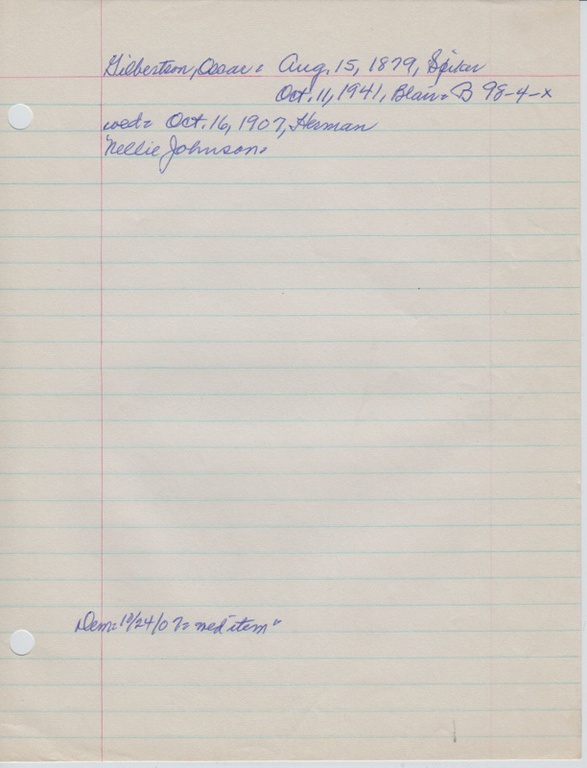 Gilbertson, Oscar: Aug. 15, 1879, Spiker
Oct. 11, 1941, Blair = B 98-4-x
wed: Oct. 16, 1907, Herman
Nellie Johnson.
Dem: 10/24/07 = wed item"